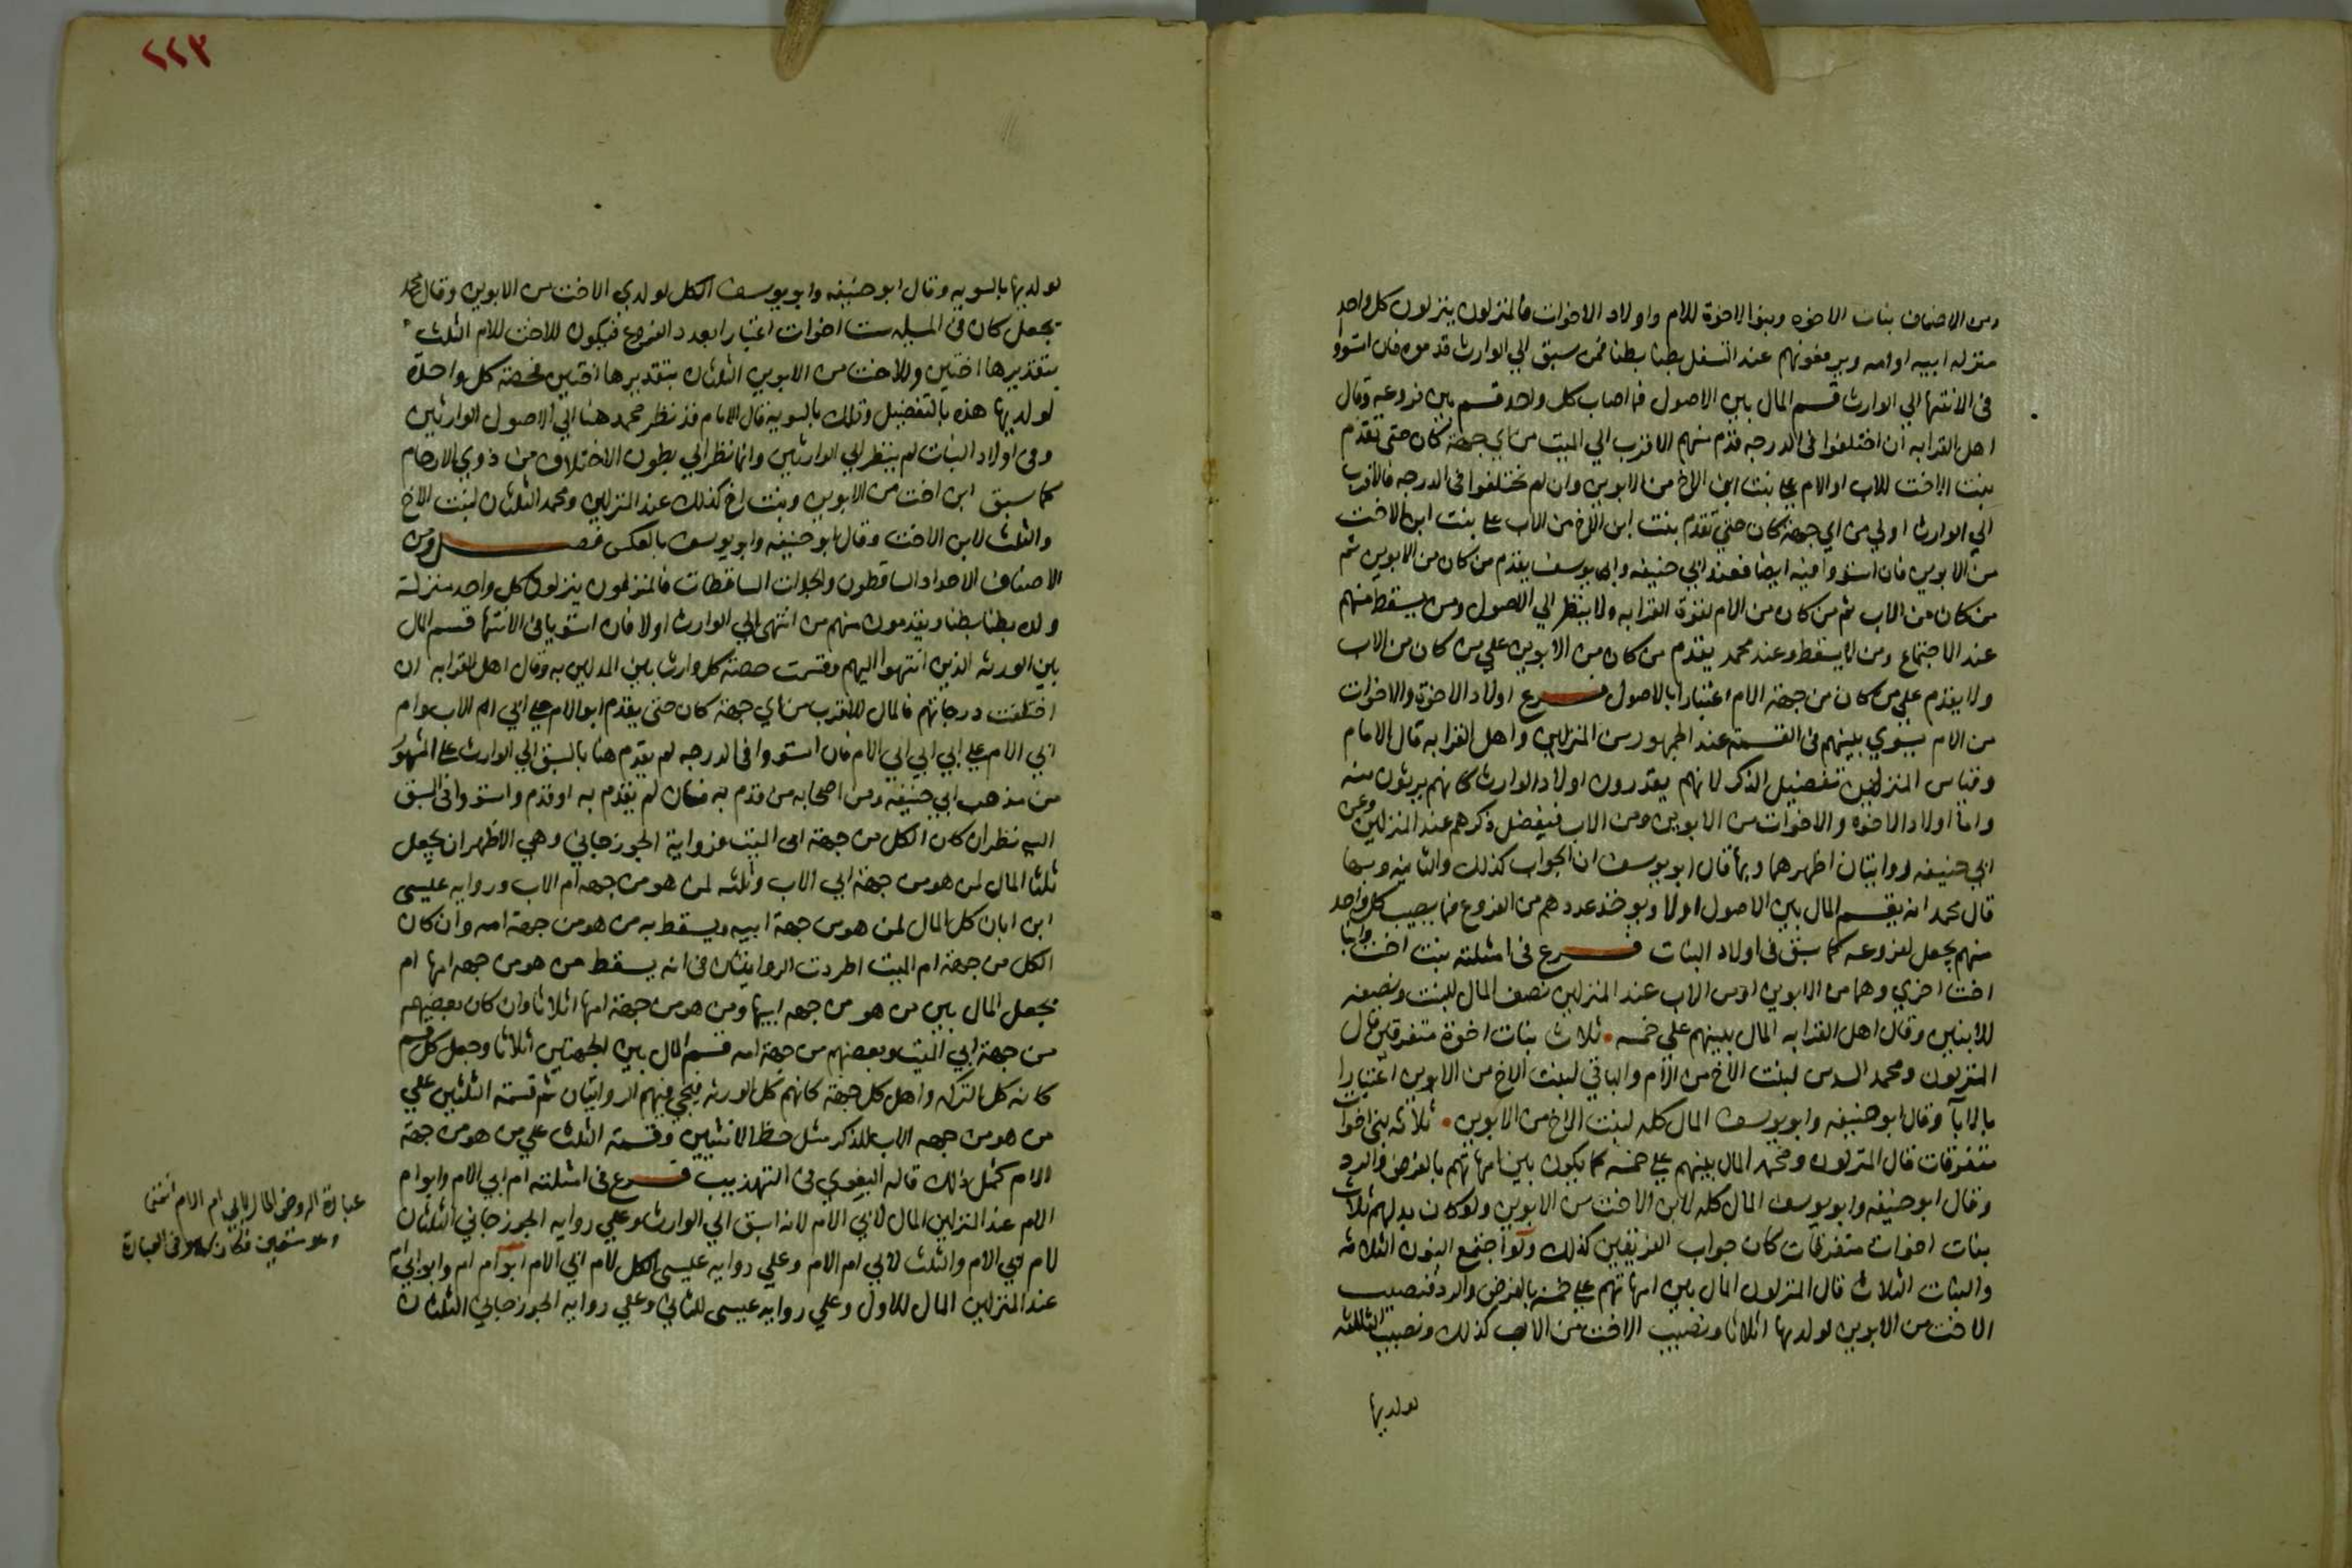 ومن الاصناف بنات الاخوه وبنوا الاخوة للام واولاد الاخوات فالمنزلون ينزلون كل واحد
منزله ابيه او امه ويرفعونهم عند التسفل بطنا بطنا فمن سبق الي الوارث قدموه فان استووا
في الانتها الي الوارث قسم المال بين الاصول فما اصاب كل واحد قسم بين فروعه وقال
اهل القرابه ان اختلفوا في الدرجه قدم منهم الاقرب الي الميت من اي جهة كان حتى تقدم
بنت الاخت للاب او الام علي بنت ابن الاخ من الابوين وان لم يختلفوا في الدرجه فالاقرب
الي الوارث اولي من اي جهة كان حتي تقدم بنت ابن الاخ من الاب علي بنت ابن الاخت
من الابوين فان استووا فيه ايضا فعند ابي حنيفه وابي يوسف يقدم من كان من الابوين ثم
من كان من الاب ثم من كان من الام لقوة القرابه ولا ينظر الي الاصول ومن يسقط منهم
عند الاجتماع ومن لا يسقط وعند محمد يقدم من كان من الابوين علي من كان من الاب
ولا يقدم علي من كان من جهة الام اعتبارا بالاصول فرع اولاد الاخوة والاخوات
من الام يسوي بينهم في القسمة عند الجمهور من المنزلين واهل القرابه قال الامام
وقياس المنزلين تفضيل الذكر لانهم يقدرون اولاد الوارث كانهم يرثون منه
واما اولاد الاخوه والاخوات من الابوين ومن الاب فيفضل ذكرهم عند المنزلين وعن
ابي حنيفه روايتان اظهرهما وبها قال ابو يوسف ان الجواب كذلك والثانيه وبها
قال محمد انه يقسم المال بين الاصول اولا ويوخذ عددهم من الفروع فما يصيب كل واحد
منهم يجعل لفروعه كما سبق في اولاد البنات فرع في امثلته بنت اخت وابنا
اخت اخري وهما من الابوين او من الاب عند المنزلين نصف المال للبنت ونصفه
للابنين وقال اهل القرابه المال بينهم علي خمسه ثلاث بنات اخوة متفرقين قال
المنزلون ومحمد السدس لبنت الاخ من الام والباقي لبنت الاخ من الابوين اعتبارا
بالابآ وقال ابو حنيفه وابو يوسف المال كله لبنت الاخ من الابوين ثلاثه بني اخوات
متفرقات قال المنزلون ومحمد المال بينهم علي خمسه كما يكون بين امهاتهم بالفرض والرد
وقال ابو حنيفه وابو يوسف المال كله لابن الاخت من الابوين ولو كان بدلهم ثلاث
بنات اخوات متفرقات كان جواب الفريقين كذلك ولو اجتمع البنون الثلاثه
والبنات الثلاث قال المنزلون المال بين امهاتهم علي خمسه بالفرض والرد فنصيب
الاخت من الابوين لولديها اثلاثا ونصيب الاخت من الاب كذلك ونصيب الثالثه
لولديها
٢٢٣
لولديها بالسويه وقال ابو حنيفه وابو يوسف الكل لولدي الاخت من الابوين وقال محمد
يجعل كان في المسله ست اخوات اعتبارا بعدد الفروع فيكون للاخت للام الثلث
بتقديرها اختين وللاخت من الابوين الثلثان بتقديرها اختين فحصة كل واحدة
لولديها هذه بالتفضيل وتلك بالسويه قال الامام فقد نظر محمد هنا الي الاصول الوارثين
وفي اولاد البنات لم ينظر الي الوارثين وانما نظر الي بطون الاختلاف من ذوي الارحام
كما سبق ابن اخت من الابوين وبنت اخ كذلك عند المنزلين ومحمد الثلثان لبنت الاخ
والثلث لابن الاخت وقال ابو حنيفه وابو يوسف بالعكس فصل ومن
الاصناف الاجداد الساقطون والجدات الساقطات فالمنزلون ينزلون كل واحد منزلة
ولده بطنا بطنا ويقدمون منهم من انتهي الي الوارث اولا فان استويا في الانتها قسم المال
بين الورثه الذين انتهوا اليهم وقسمت حصة كل وارث بين المدلين به وقال اهل القرابه ان
اختلفت درجاتهم فالمال للاقرب من اي جهة كان حتي يقدم ابو الام علي ابي ام الاب وام
ابي الام علي ابي ابي ابي الام فان استووا في الدرجه لم يقدم هنا بالسبق الي الوارث علي المشهور
من مذهب ابي حنيفه ومن اصحابه من قدم به فان لم يقدم به او قدم واستووا في السبق
اليه نظر ان كان الكل من جهة ابي الميت فرواية الجوزجاني وهي الاظهر ان يجعل
ثلثا المال لمن هو من جهة ابي الاب وثلثه لمن هو من جهه ام الاب وروايه عيسي
ابن ابان كل المال لمن هو من جهة ابيه ويسقط به من هو من جهة امه وان كان
الكل من جهة ام الميت اطردت الروايتان في انه يسقط من هو من جهه امها ام
يجعل المال بين من هو من جهه ابيها ومن هو من جهة امها اثلاثا وان كان بعضهم
من جهة ابي الميت وبعضهم من جهة امه قسم المال بين الجهتين اثلاثا وجعل كل قسم
كانه كل التركه واهل كل جهة كانهم كل الورثه فيجي فيهم الروايتان ثم قسمة الثلثين علي
من هو من جهه الاب للذكر مثل حظ الانثيين وقسمة الثلث علي من هو من جهة
الام كمثل ذلك قاله البغوي في التهذيب فرع في امثلته ام ابي الام وابو ام
الام عند المنزلين المال لابي الام لانه اسبق الي الوارث وعلي روايه الجوزجاني الثلثان
لام ابي الام والثلث لابي ام الام وعلي روايه عيسي الكل لام ابي الام ابو ام ام وابو ابي ام
عند المنزلين المال للاول وعلي روايه عيسي للثاني وعلي روايه الجوزجاني الثلثان
عبارة الروض المال لابي ام الام